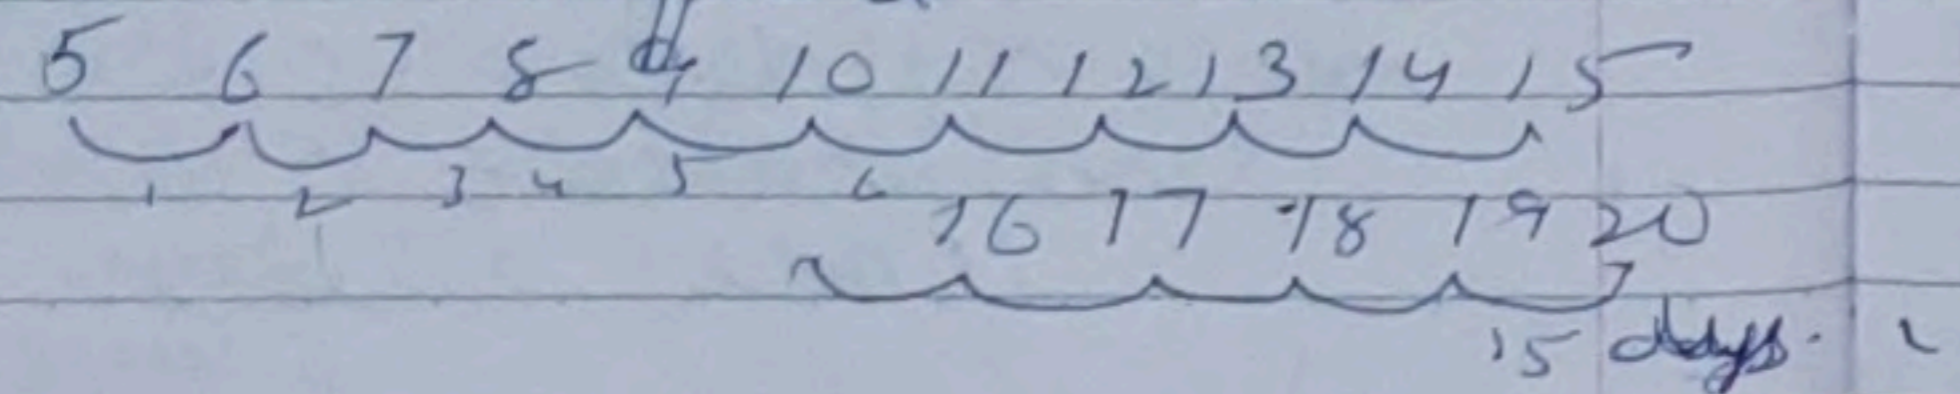 5 6 7 8 9 10 11 12 13 14 15
1 2 3 4 5 6
16 17 18 19 20
15 days.